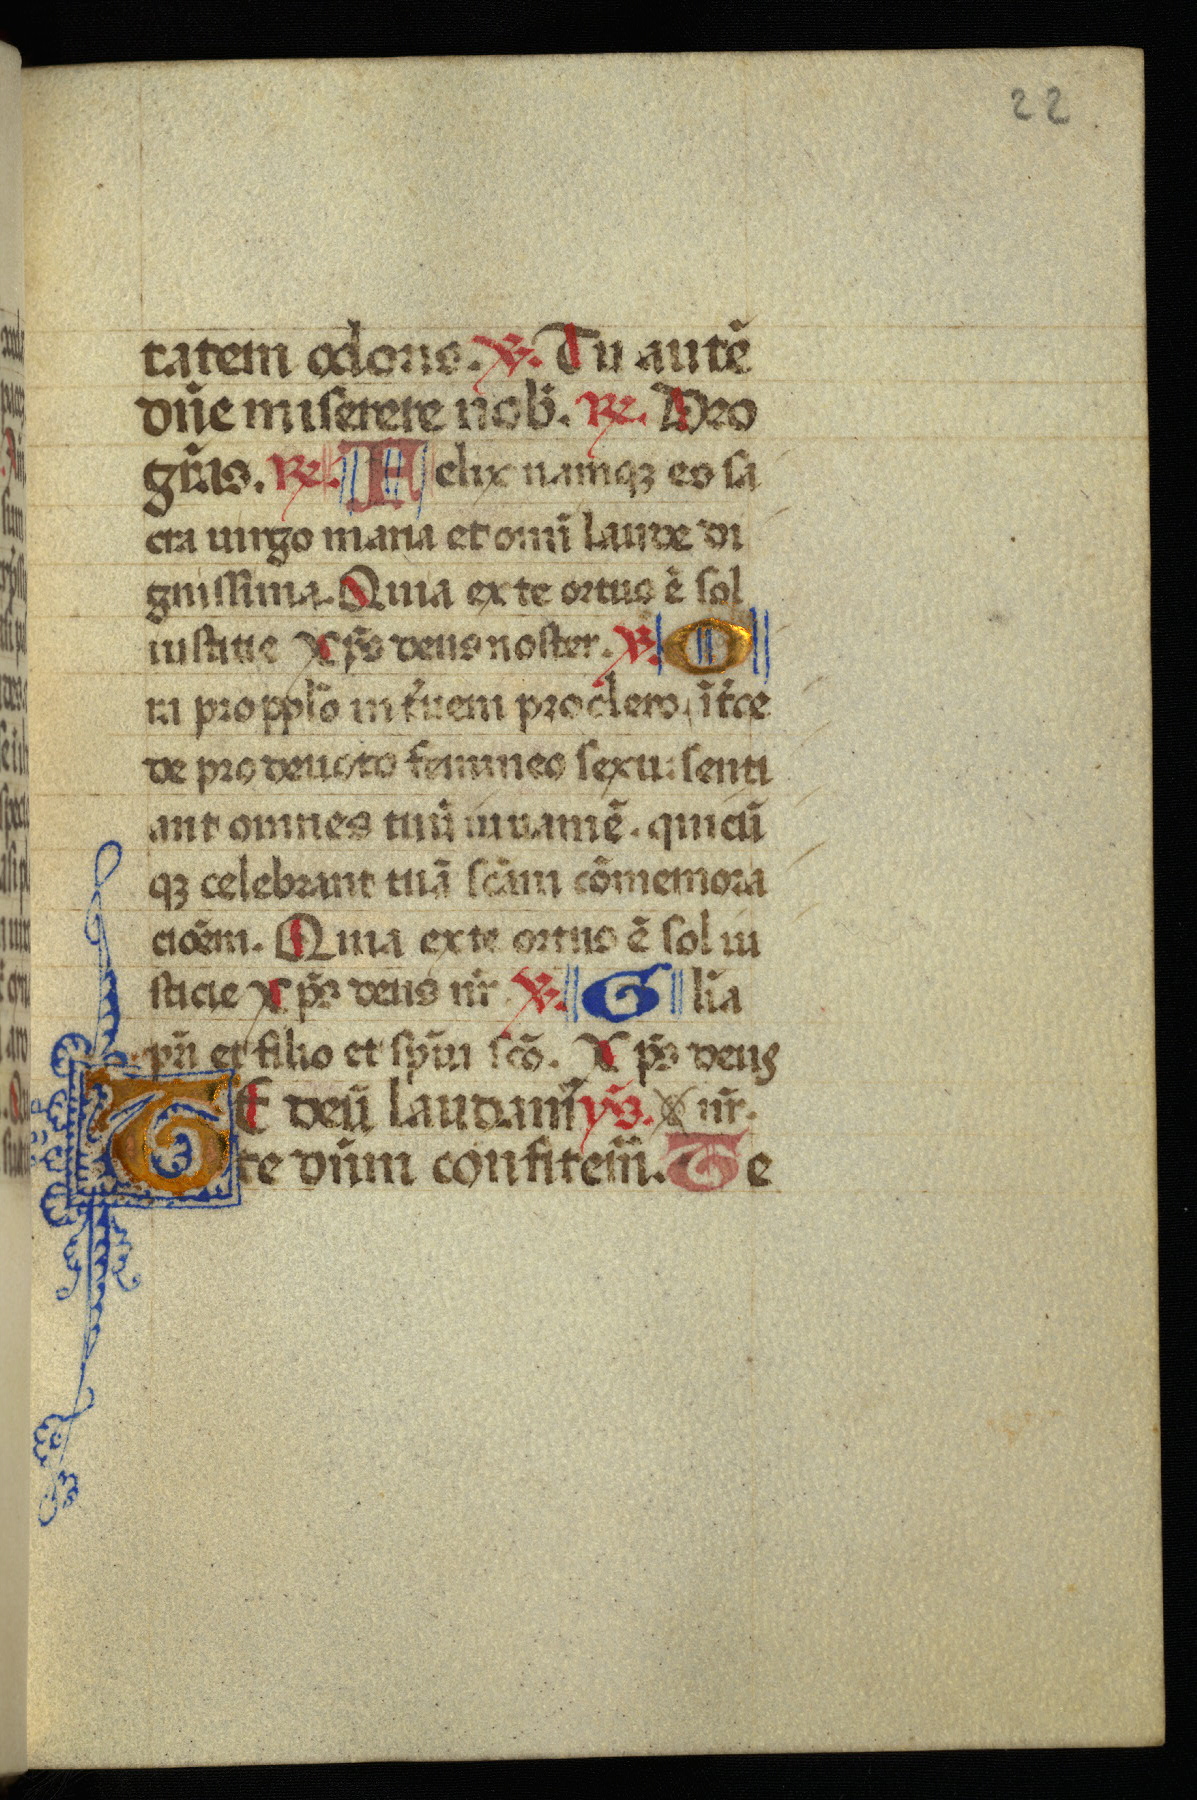 22
tatem odoris. ℣. Tu autē
dn̄e miserere nob̄. ℟. Deo
gr̄as. ℟. Felix namqꝫ es sa
cra uirgo maria et om̄i laude di
gnissima. Quia ex te ortus ē sol
iusticie xp̄s deus noster. ℣. O
ra pro pplō in t̄ueni pro clero, īt̄ce
de pro deuoto femineo sexu: senti
ant omnes tuū iuuamē. quicū
qꝫ celebrant tuā scām cōmemora
cioēm. Quia ex te ortus ē sol iu
sticie xp̄s deus nr̄. ℣. Gl̄ia
pr̄i et filio et sp̄ui scō. Xp̄s deus
TE deū laudam̄ ym̄s. nr̄.
te dūm confitem̄. Te